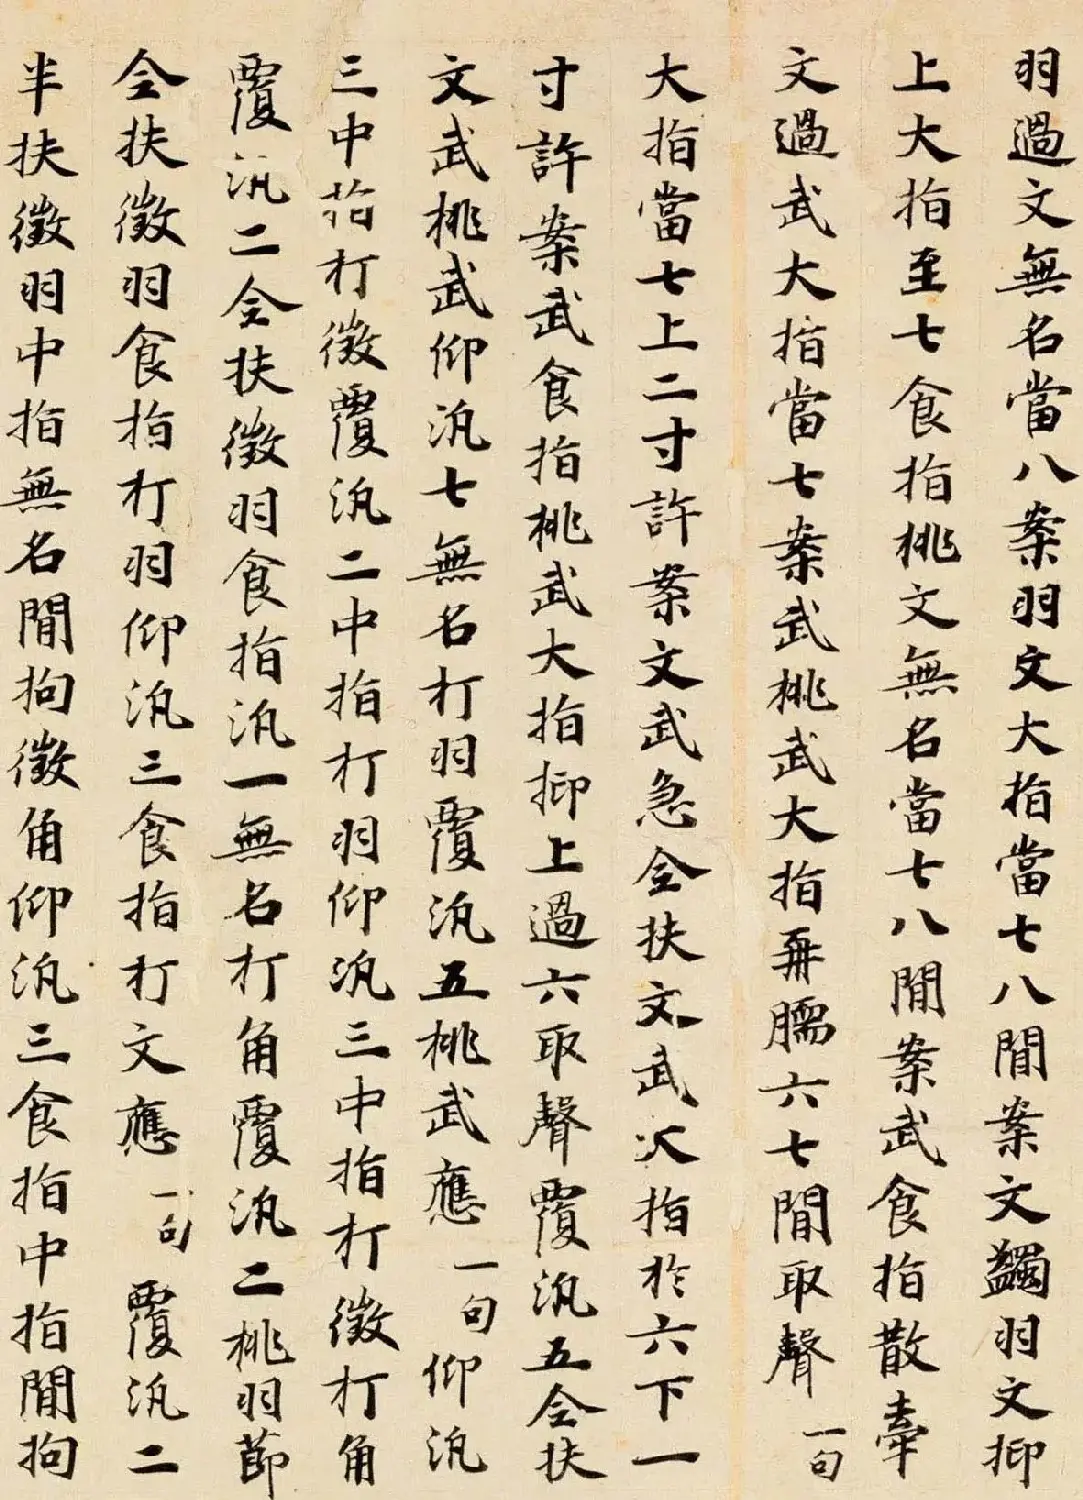 羽過文無名當八案羽文大指當七八間案文蠲羽文抑
上大指至七食指桃文無名當七八間案武食指散牽
文過武大指當七案武桃武大指再臑六七間取聲一句
大指當七上二寸許案文武急全扶文武大指於六下一
寸許案武食指桃武大指抑上過六取聲覆汎五全扶
文武桃武仰汎七無名打羽覆汎五桃武應一句仰汎
三中指打徵覆汎二中指打羽仰汎三中指打徵打角
覆汎二全扶徵羽食指汎一無名打角覆汎二桃羽莭
全扶徵羽食指打羽仰汎三食指打文應一句覆汎二
半扶徵羽中指無名間拘徵角仰汎三食指中指間拘